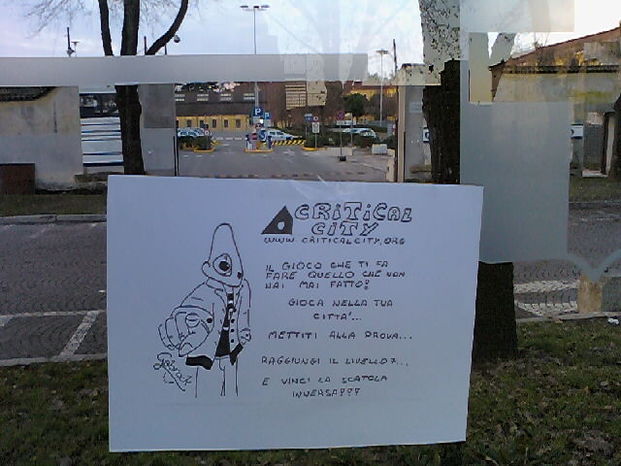 CRITICAL
CITY
WWW.CRITICALCITY.ORG
IL GIOCO CHE TI FA
FARE QUELLO CHE NON
HAI MAI FATTO!
GIOCA NELLA TUA
CITTA'...
METTITI ALLA PROVA...
RAGGIUNGI IL LIVELLO 7...
E VINCI LA SCATOLA
INVERSA???
P